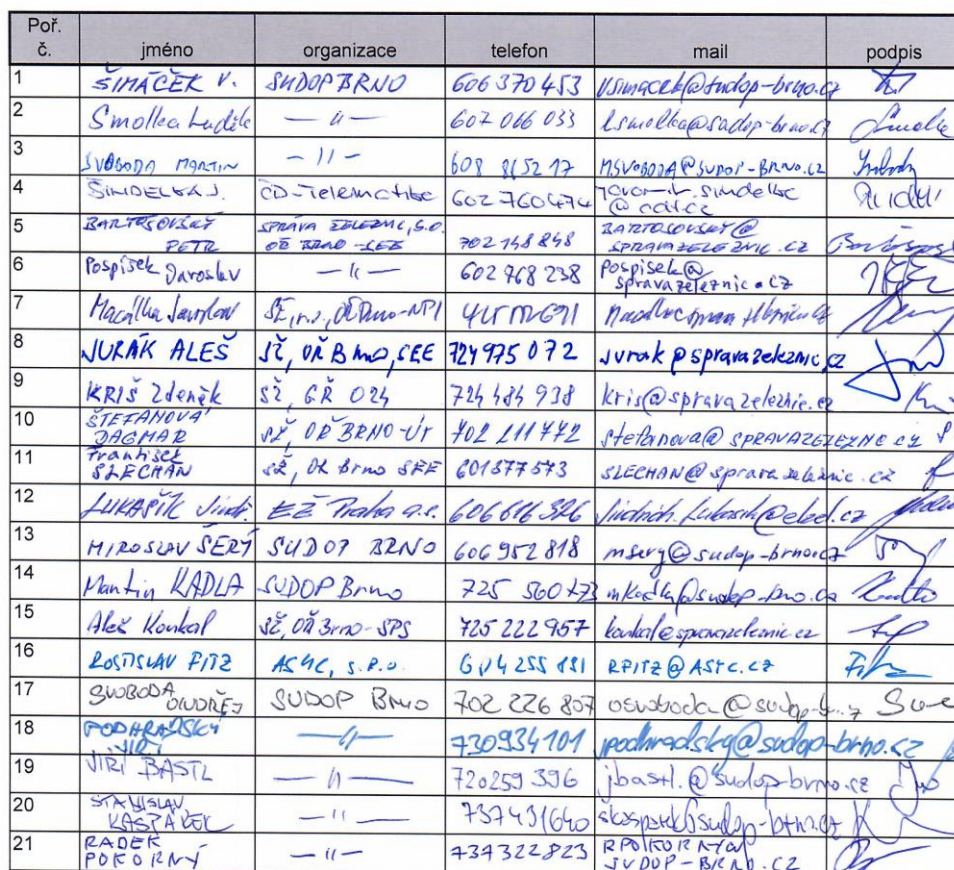 Poř. č. jméno organizace telefon mail podpis
1 ŠIMÁČEK V. SUDOP BRNO 606 370 453 vsimacek@sudop-brno.cz
2 Smolka Luděk — 11 — 607 066 033 lsmolka@sudop-brno.cz
3 SVOBODA MARTIN — 11 — 608 815217 MSVOBODA@SUDOP-BRNO.CZ
4 ŠINDELKA J. ČD-Telematika 602 760474 jaromir.sindelka
@cdt.cz
5 BARTOŠOVSKÝ SPRÁVA ŽELEZNIC, S.O. BARTOSOVSKY@
PETR OŘ BRNO - SEE 702 148 848 SPRAVAZELEZNIC.CZ
6 Pospíšek Jaroslav — 11 — 602 768 238 Pospisek@
spravazeleznic.cz
7 Macálka Jaroslav
8 JURÁK ALEŠ SŽ, OŘ Brno, SEE 724 975 072 jurak@spravazeleznic.cz
9 KRIŠ Zdeněk SŽ, GŘ O24 724 484 938 kris@spravazeleznic.cz
10 ŠTEFANOVÁ
DAGMAR SŽ, OŘ BRNO-ÚT 702 211 772 stefanova@SPRAVAZELEZNIC.CZ
11 František
SLECHAN SŽ, OŘ Brno SEE 601577573 SLECHAN@spravazeleznic.cz
12 LUKAŠÍK Jindř. EŽ Praha a.s. 606 616 326 Jindrich.Lukasik@elzel.cz
13 MIROSLAV ŠERÝ SUDOP BRNO 606 952 818 msery@sudop-brno.cz
14 Martin KADLA SUDOP Brno 725 560 773 mkadla@sudop-brno.cz
15 Aleš Koukal SŽ, OŘ Brno-SPS 725 222 957 koukal@spravazeleznic.cz
16 ROSTISLAV PITZ s.r.o. 604 255 891 RPITZ@
17 SVOBODA
ONDŘEJ SUDOP Brno 702 226 807 osvoboda@sudop-brno.cz
18 PODHRADSKÝ
JIŘÍ — 11 — 730934101 jpodhradsky@sudop-brno.cz
19 JIŘÍ BASTL — 11 — 720259 396 jbastl.@sudop-brno.cz
20 STANISLAV
KAŠPÁREK — 11 — 737431640 skasparek@sudop-brno.cz
21 RADEK RPOKORNY@
POKORNÝ — 11 — 737322823 SUDOP-BRNO.CZ